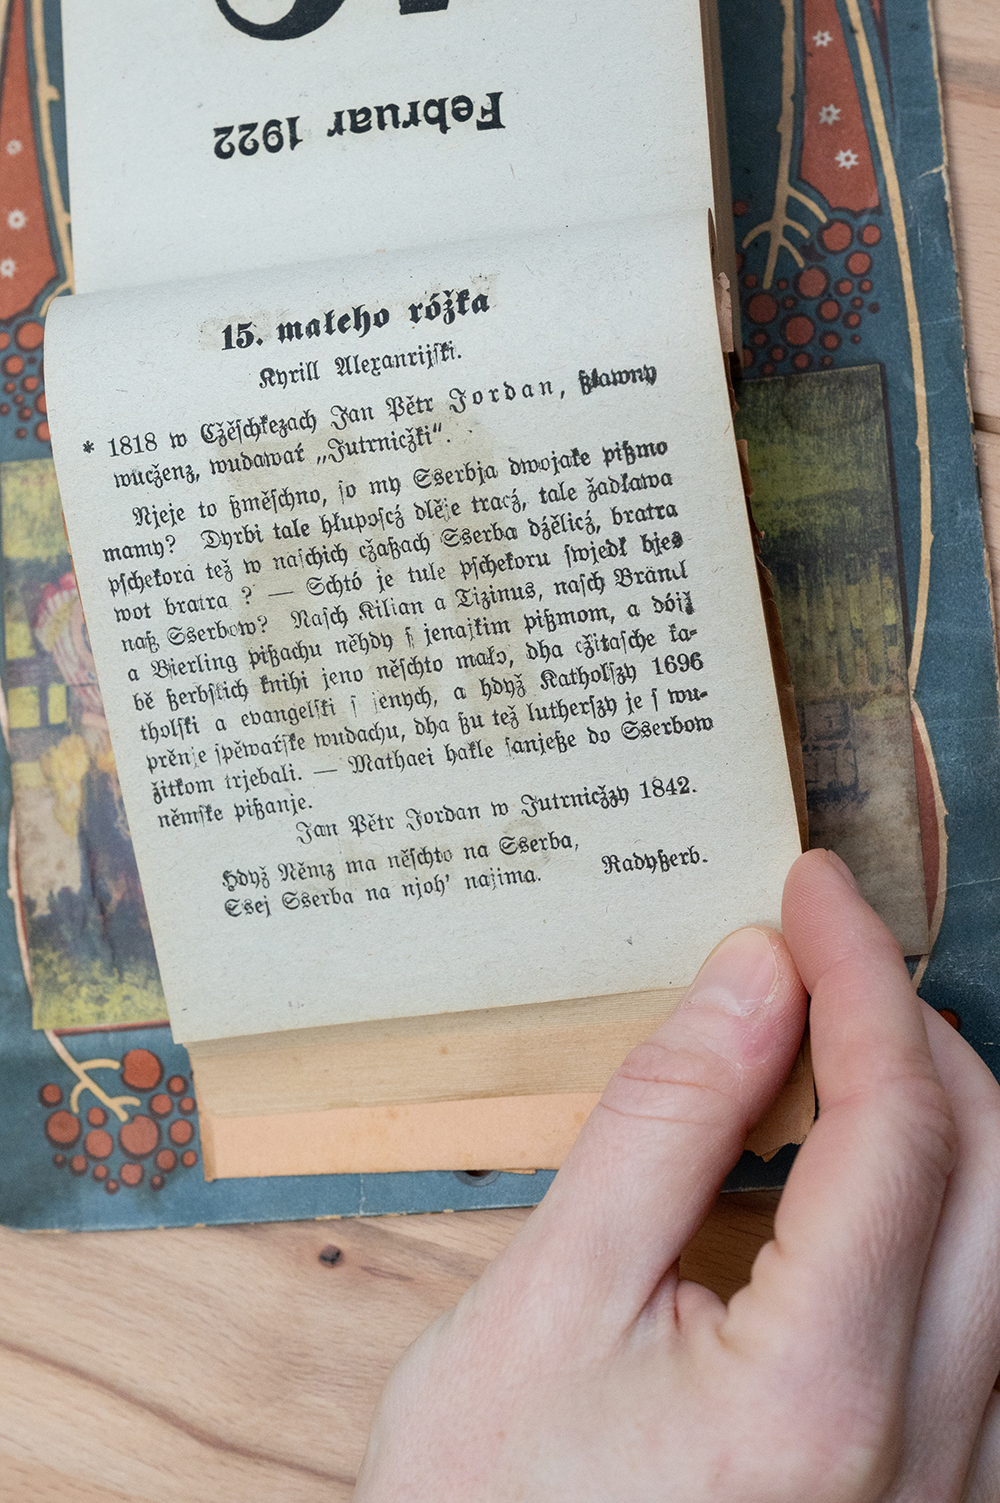 Februar 1922
15. maleho róžka
Kyrill Alexanrijſki.
* 1818 w Czěſchkezach Jan Pětr Jordan, ßławny
wuczenz, wudawař „Jutrniczki“.
Njeje to ßměſchno, ſo my Sserbja dwojake pißmo
mamy? Dyrbi tale hłupoſcz dlěje tracz, tale žadława
pſchekora tež w naſchich czaßach Sserba dželicz, bratra
wot bratra? — Schtó je tule pſchekoru ſwjedł bjes
naß Sserbow? Naſch Kilian a Tizinus, naſch Bränzl
a Bierling pißachu něhdy ſ jenajkim pißmom, a dóiž
bě ßerbſkich knihi jeno něſchto mało, dha czitaſche ka-
tholſki a evangelſki ſ jenych, a hdyž Katholſzy 1696
prěnje ſpěwařſke wudachu, dha ßu tež lutherſzy je ſ wu-
žitkom trjebali. — Mathaei hakle ſanjeße do Sserbow
němſke pißanje.
Jan Pětr Jordan w Jutrniczzy 1842.
Hdyž Němz ma něſchto na Sserba,
Esej Sserba na njoh' najima. Radyßerb.